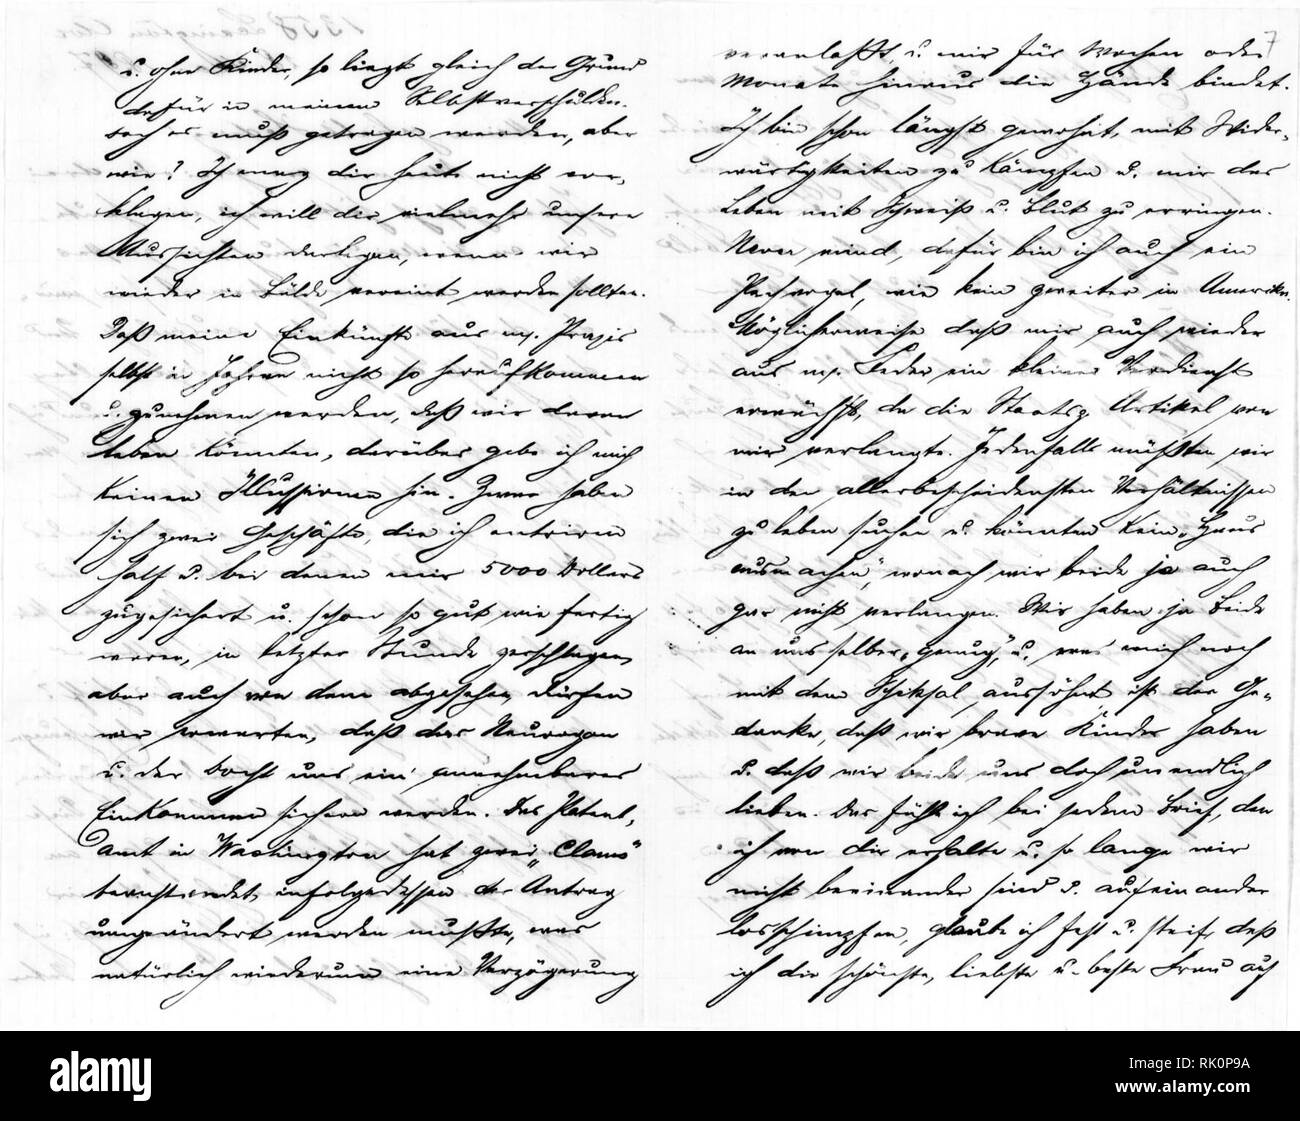 u. ohne Kinder, so liegt gleich der Grund
dafür in meinem Selbstverschulden.
doch es muß getragen werden, aber
wie? Ich mag dir heute nicht vor-
klagen, ich will dir vielmehr unsere
Aussichten darlegen, wenn wir
wieder in Bälde vereint werden sollten.
Daß meine Einkünfte aus m. Praxis
selbst in Jahren nicht so heraufkommen
u. zunehmen werden, daß wir davon
leben könnten, darüber gebe ich mich
keinen Illussionen hin. Zwar haben
sich zwei Geschäfte, die ich entriren
half u. bei denen mir 5000 Dollars
zugesichert u. schon so gut wie fertig
waren, in letzter Stunde zerschlagen,
aber auch von dem abgesehen dürfen
wir erwarten, daß das
u. der Docht uns ein annehmbares
Einkommen sichern werden. Das Patent-
amt in Washington hat zwei „Claims“
beanstandet, infolgedessen der Antrag
umgeändert werden mußte, was
natürlich wiederum eine Verzögerung
7
veranlaßt, u. mir für Wochen oder
Monate hinaus die Hände bindet.
Ich bin schon längst gewohnt, mit Wider-
wärtigkeiten zu kämpfen u. mir das
Leben mit Schweiß u. Blut zu erringen.
Never mind, dafür bin ich auch ein
Pechvogel, wie kein zweiter in Amerika.
Möglicherweise daß mir auch wieder
aus m. Feder ein kleiner Verdienst
erwächst, da die Staatsz. Artikel von
mir verlangte. Jedenfalls müßten wir
in den allerbescheidensten Verhältnissen
zu leben suchen u. könnten kein „Haus
ausmachen“, wonach wir beide ja auch
gar nicht verlangen. Wir haben ja Beide
an uns selber „genug“, u. was mich noch
mit dem Schiksal aussöhnt, ist der Ge-
danke, daß wir brave Kinder haben
u. daß wir beide uns doch unendlich
lieben. Das fühl ich bei jedem Brief, den
ich von dir erhalte u. so lange wir
nicht beeinander sind u. aufeinander
losschimpfen, glaube ich fest u. steif, daß
ich die schönste, liebste u. beste Frau auf
alamy
Image ID: RK0P9A
www.alamy.com